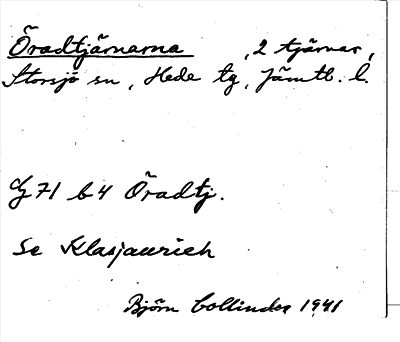 Öradtjärnarna , 2 tjärnar,
Storsjö sn, Hede tg, Jämtl. l.
71 b 4 Öradtj.
Se Klasjaurieh
Björn Collinder 1941